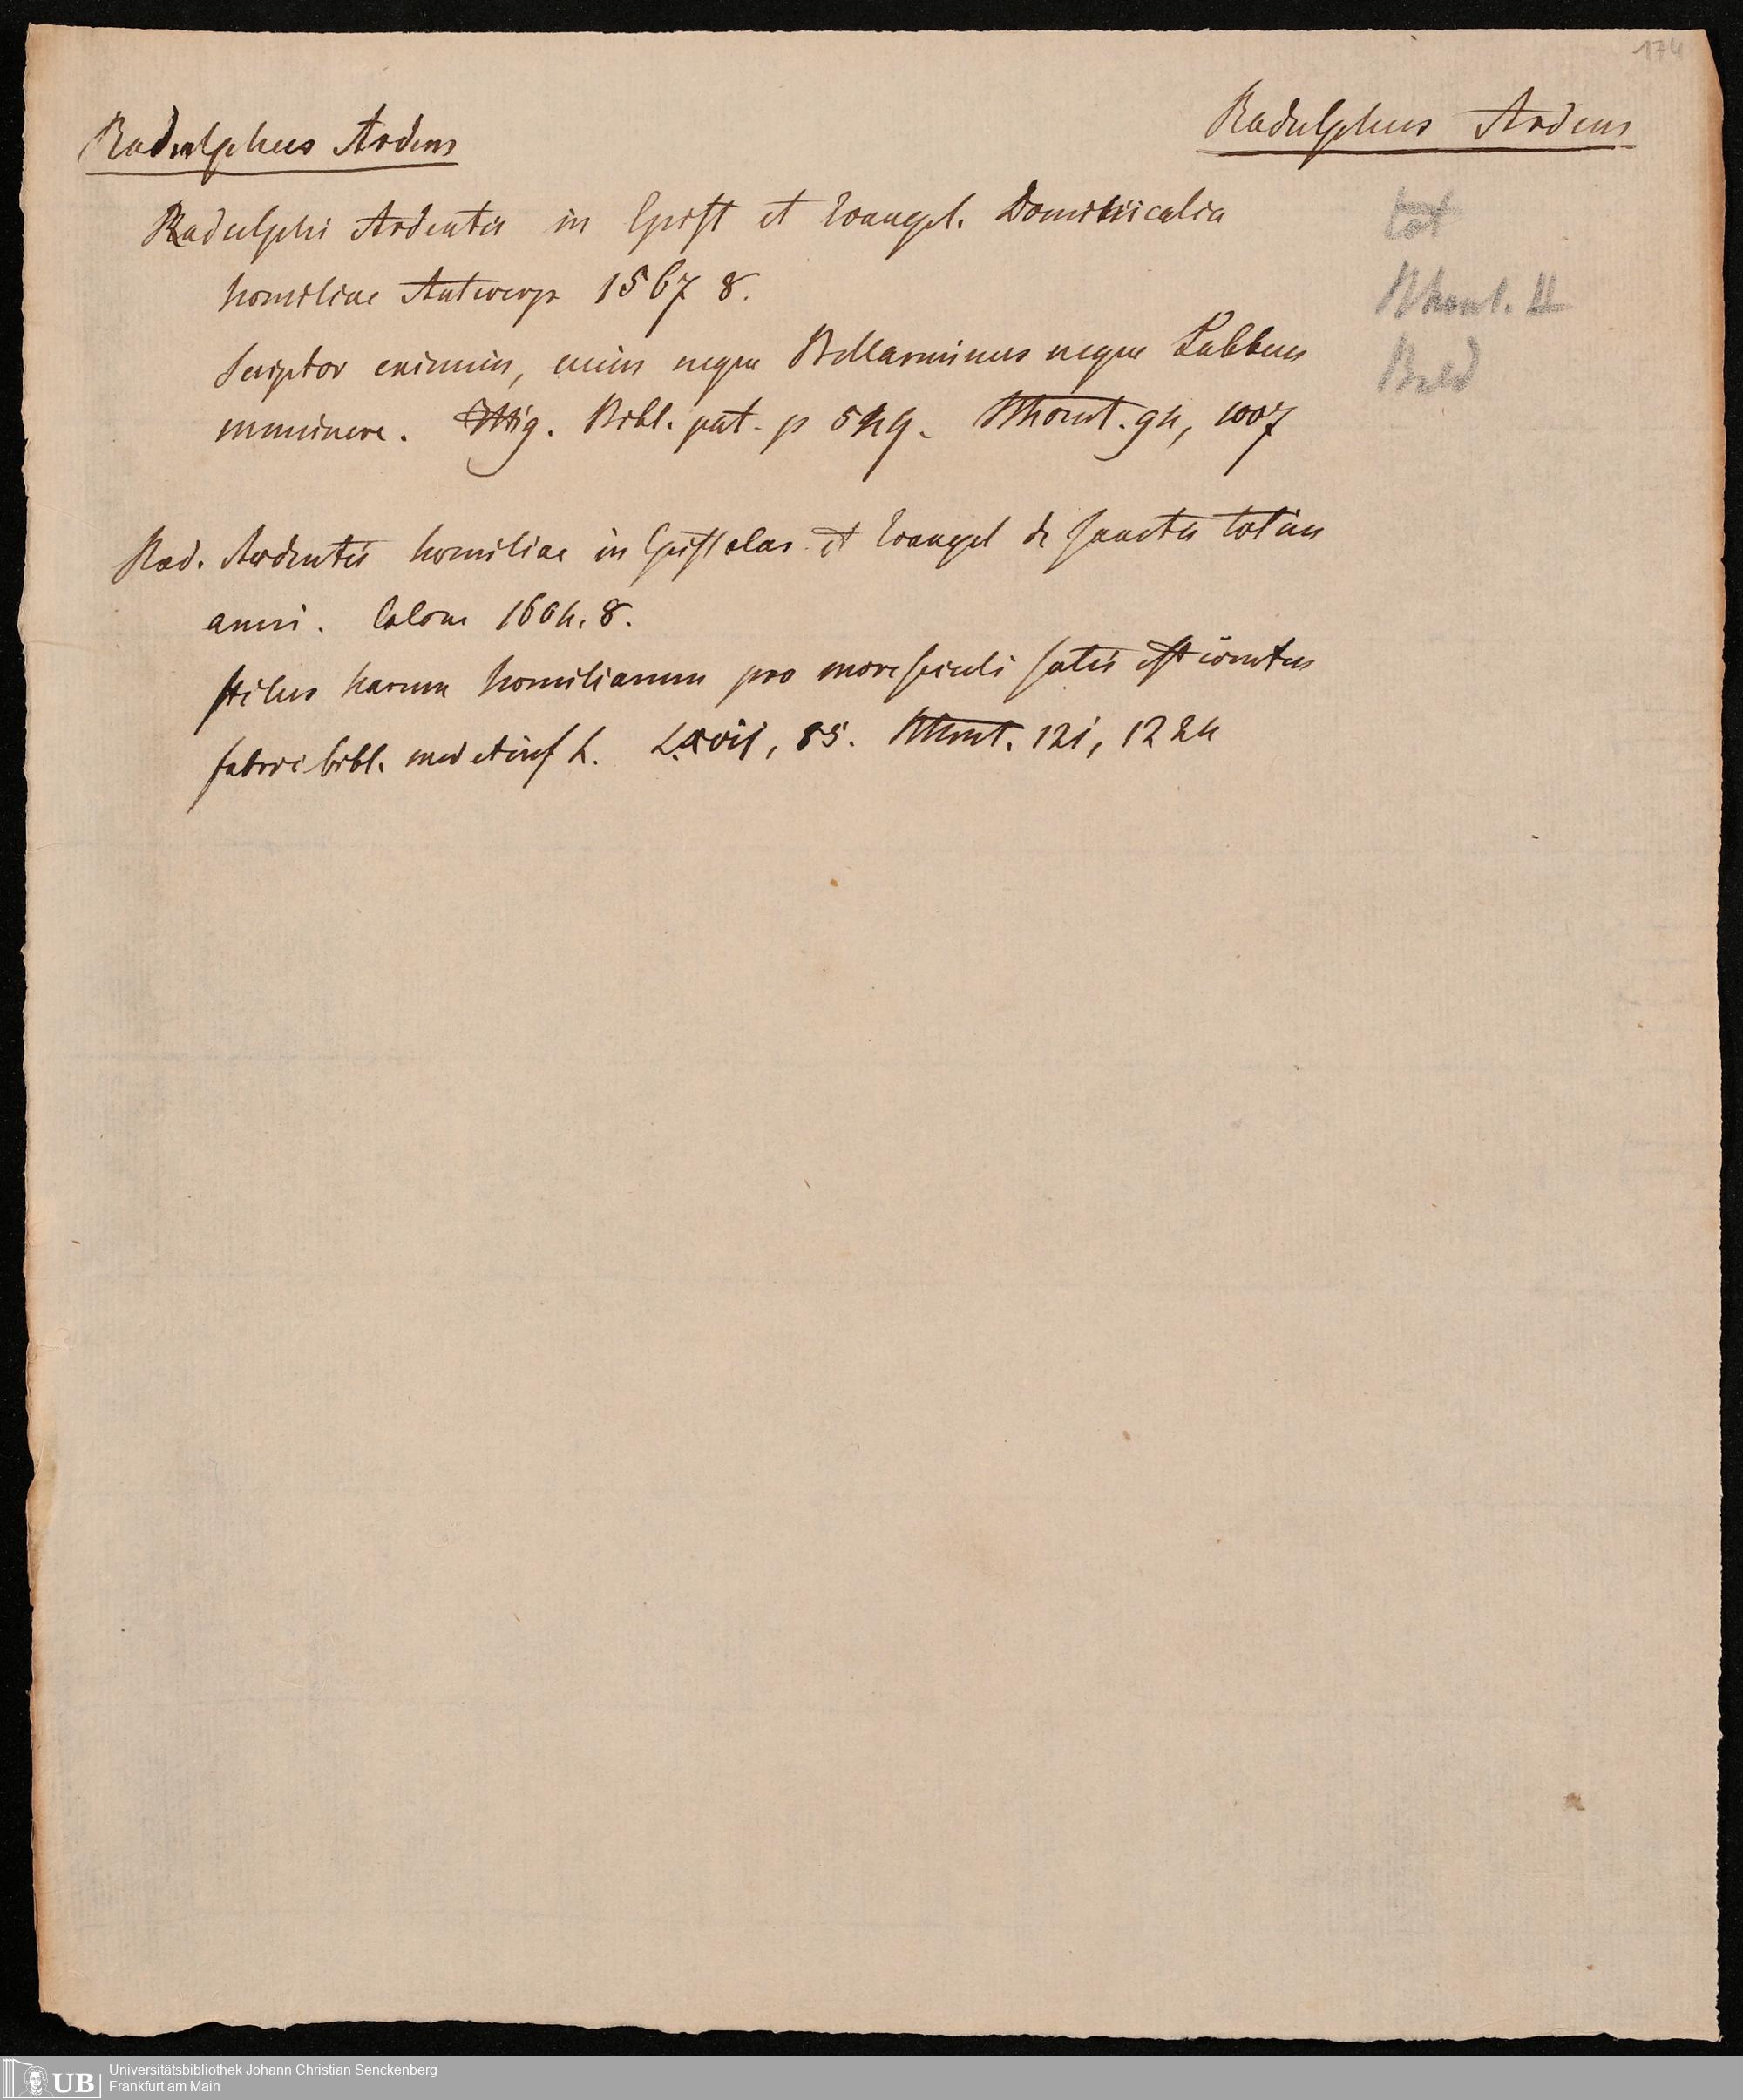 174
Radulphus Ardens
Radulphus Ardens
Radulphi Ardentis in Epist et Evangel. Dominicalia
homiliae Antwerp 1567 8.
Scriptor eximius, cuius neque Bellarminus neque Labbeus
meminere. Ittig. Bibl. pat. p 549. Bthomt. 94, 1007
Rad. Ardentis homiliae in Epistolas et Evangel de sanctis totius
anni. Colon 1604. 8.
stilus harum homiliarum pro more seculi satis est
fabrici bibl. med et inf L. L. xvii, 85. 121, 1224
tat
II
UB
Universitätsbibliothek Johann Christian Senckenberg
Frankfurt am Main